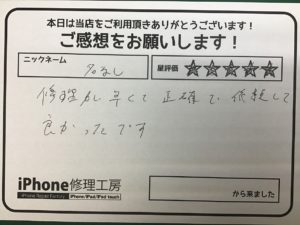 本日は当店をご利用頂きありがとうございます！
ご感想をお願いします！
ニックネーム 名なし 星評価
修理が早くて正確で依頼して
良かったです
iPhone修理工房
iPhone Repair Factory iPhone/iPad/iPod touch
から来ました